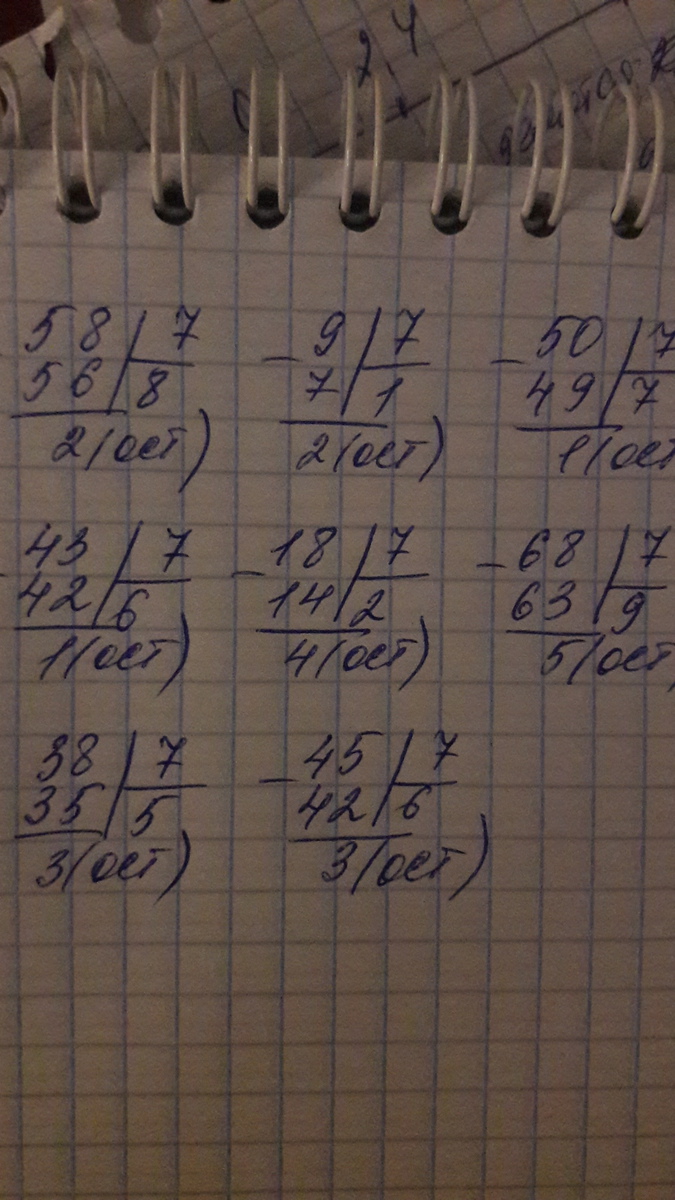 24
58 | 7 - 9 | 7 - 50 | 7
56 | 8 7 | 1 49 | 7
2 (ост) 2 (ост) 1 (ост
- 43 | 7 - 18 | 7 - 68 | 7
42 | 6 14 | 2 63 | 9
1 (ост) 4 (ост) 5 (ост)
38 | 7 - 45 | 7
35 | 5 42 | 6
3 (ост) 3 (ост)